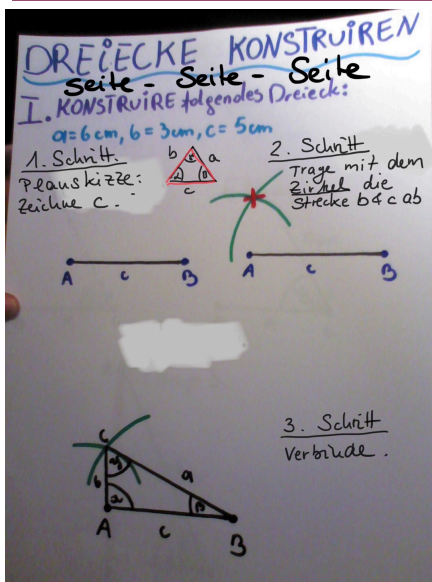 DREIECKE KONSTRUIREN
Seite - Seite - Seite
I. KONSTRUIRE folgendes Dreieck:
a=6cm, b=3cm, c=5cm
1. Schritt.
Planskizze:
Zeichne c.
b a
c
2. Schritt
Trage mit dem
Zirkel die
Strecke b & c ab
A c B
A c B
3. Schritt
Verbinde.
C
b a
A c B